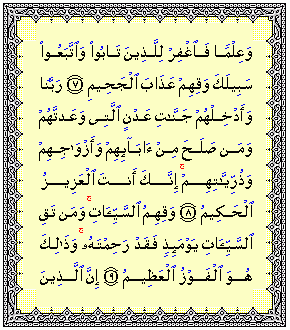 وَعِلْمًا فَٱغْفِرْ لِلَّذِينَ تَابُوا۟ وَٱتَّبَعُوا۟
سَبِيلَكَ وَقِهِمْ عَذَابَ ٱلْجَحِيمِ ٧ رَبَّنَا
وَأَدْخِلْهُمْ جَنَّٰتِ عَدْنٍ ٱلَّتِى وَعَدتَّهُمْ
وَمَن صَلَحَ مِنْ ءَابَآئِهِمْ وَأَزْوَٰجِهِمْ
وَذُرِّيَّٰتِهِمْ ۚ إِنَّكَ أَنتَ ٱلْعَزِيزُ
ٱلْحَكِيمُ ٨ وَقِهِمُ ٱلسَّيِّـَٔاتِ ۚ وَمَن تَقِ
ٱلسَّيِّـَٔاتِ يَوْمَئِذٍ فَقَدْ رَحِمْتَهُۥ ۚ وَذَٰلِكَ
هُوَ ٱلْفَوْزُ ٱلْعَظِيمُ ٩ إِنَّ ٱلَّذِينَ